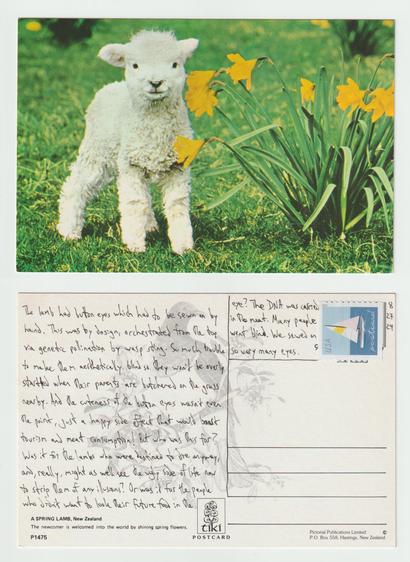 The lamb had button eyes which had to be sewn in by
hand. This was by design, orchestrated from the top
via genetic pollination by wasp sting. So much trouble
to make them aesthetically blind so they won't be overly
startled when their parents are butchered in the grass
nearby. And the cuteness of the button eyes wasn't even
the point, just a happy side effect that would boost
tourism and meat consumption. But who was this for?
Was it for the lambs who were destined to die anyway,
and, really, might as well see the ugly side of life now
to strip them of any illusions? Or was it for the people
who didn't want to look their future food in the
eye? The DNA was carried
in the meat. Many people
went blind. We sewed on
so very many eyes.
USA
postcard
8
27
24
5
A SPRING LAMB, New Zealand
The newcomer is welcomed into the world by shining spring flowers.
P1475
tiki
POSTCARD
Pictorial Publications Limited ©
P.O. Box 558, Hastings, New Zealand